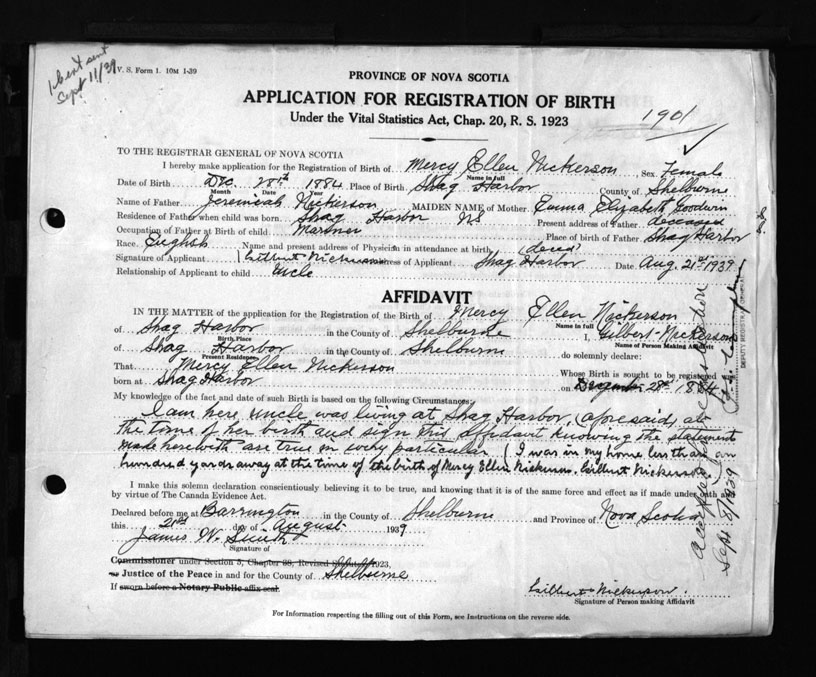 1 cert sent
Sept 11/39
V. S. Form 1. 10M 1-39
PROVINCE OF NOVA SCOTIA
APPLICATION FOR REGISTRATION OF BIRTH
Under the Vital Statistics Act, Chap. 20, R. S. 1923
1901
TO THE REGISTRAR GENERAL OF NOVA SCOTIA
I hereby make application for the Registration of Birth of Mercy Ellen Nickerson Sex Female
Name in full
Date of Birth Dec. 28th 1884 Place of Birth Shag Harbor County of Shelburne
Month Date Year
Name of Father Jeremiah Nickerson MAIDEN NAME of Mother Emma Elizabeth Goodwin
Residence of Father when child was born Shag Harbor NS Present address of Father deceased
Occupation of Father at Birth of child Mariner Place of birth of Father Shag Harbor
Race English Name and present address of Physician in attendance at birth (deced)
Signature of Applicant Gilbert Nickerson Address of Applicant Shag Harbor Date Aug. 21st 1939
Relationship of Applicant to child Uncle
AFFIDAVIT
IN THE MATTER of the application for the Registration of the Birth of Mercy Ellen Nickerson
Name in full
of Shag Harbor in the County of Shelburne I, Gilbert Nickerson
Birth Place Name of Person Making Affidavit
of Shag Harbor in the County of Shelburne do solemnly declare:
Present Residence
That Mercy Ellen Nickerson Whose Birth is sought to be registered was
born at Shag Harbor on December 28th 1884
My knowledge of the fact and date of such Birth is based on the following Circumstances:
I am here uncle was living at Shag Harbor, (aforesaid) at
the time of her birth and sign this Affidavit knowing the statement
made herewith are true in every particular (I was in my home less than an
hundred yards away at the time of the birth of Mercy Ellen Nickerson. Gilbert Nickerson
I make this solemn declaration conscientiously believing it to be true, and knowing that it is of the same force and effect as if made under oath and
by virtue of The Canada Evidence Act.
Declared before me at Barrington in the County of Shelburne and Province of Nova Scotia
this 21st day of August 1939
James W. Smith
Signature of
Commissioner under Section 5, Chapter 38, Revised Statutes 1923,
or Justice of the Peace in and for the County of Shelburne
If sworn before a Notary Public affix seal.
Gilbert Nickerson
Signature of Person making Affidavit
For Information respecting the filling out of this Form, see Instructions on the reverse side.
Accepted for registration
Sept 8/1939
DEPUTY REGISTRAR GENERAL